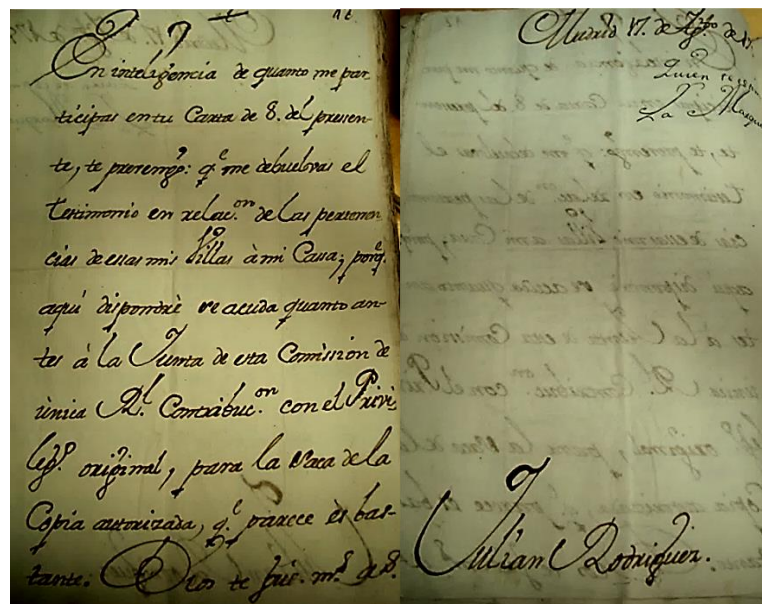 En inteligencia de quanto me par-
ticipas en tu Carta de 8. del presen-
te, te prevengo: q.e me debuelvas el
testimonio en relac.on de las pertenen-
cias de essas mis Villas à mi Cassa; porq.
aquì dispondrè se acuda quanto an-
tes à la Junta de esta Comission de
ùnica R.l Contribuc.on con el Privi-
leg.o original, para la saca de la
Copia autorizada, q.e parece ès bas-
tante. Dios te gũe. m.s a.s
Madrid 17. de
Quien
La
Julian Rodriguez.